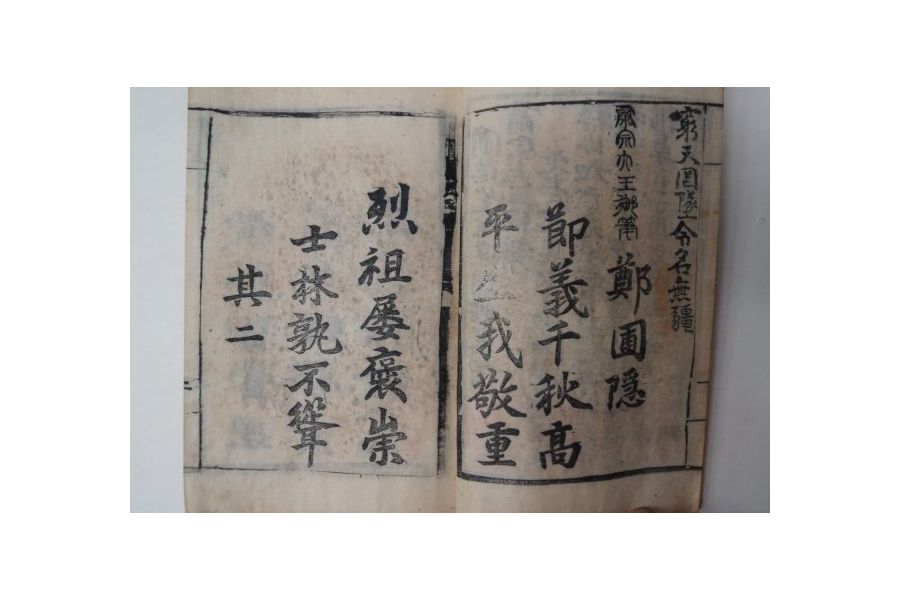 窮天罔墜令名無疆
肅宗大王御筆 鄭圃隱
節義千秋高
平生我敬重
烈祖屢褒崇
士林孰不聳
其二